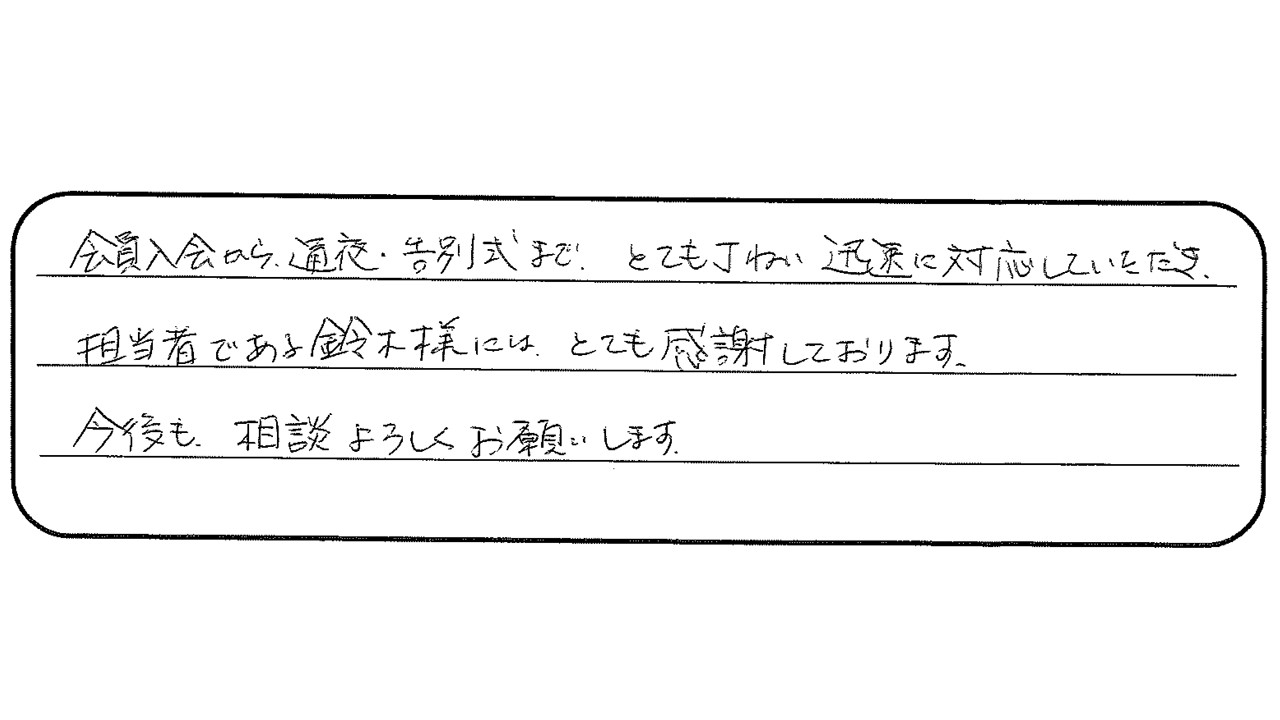 会員入会から、通夜・告別式まで、とても丁ねい迅速に対応していただき、
担当者である鈴木様には、とても感謝しております。
今後も、相談よろしくお願いします。